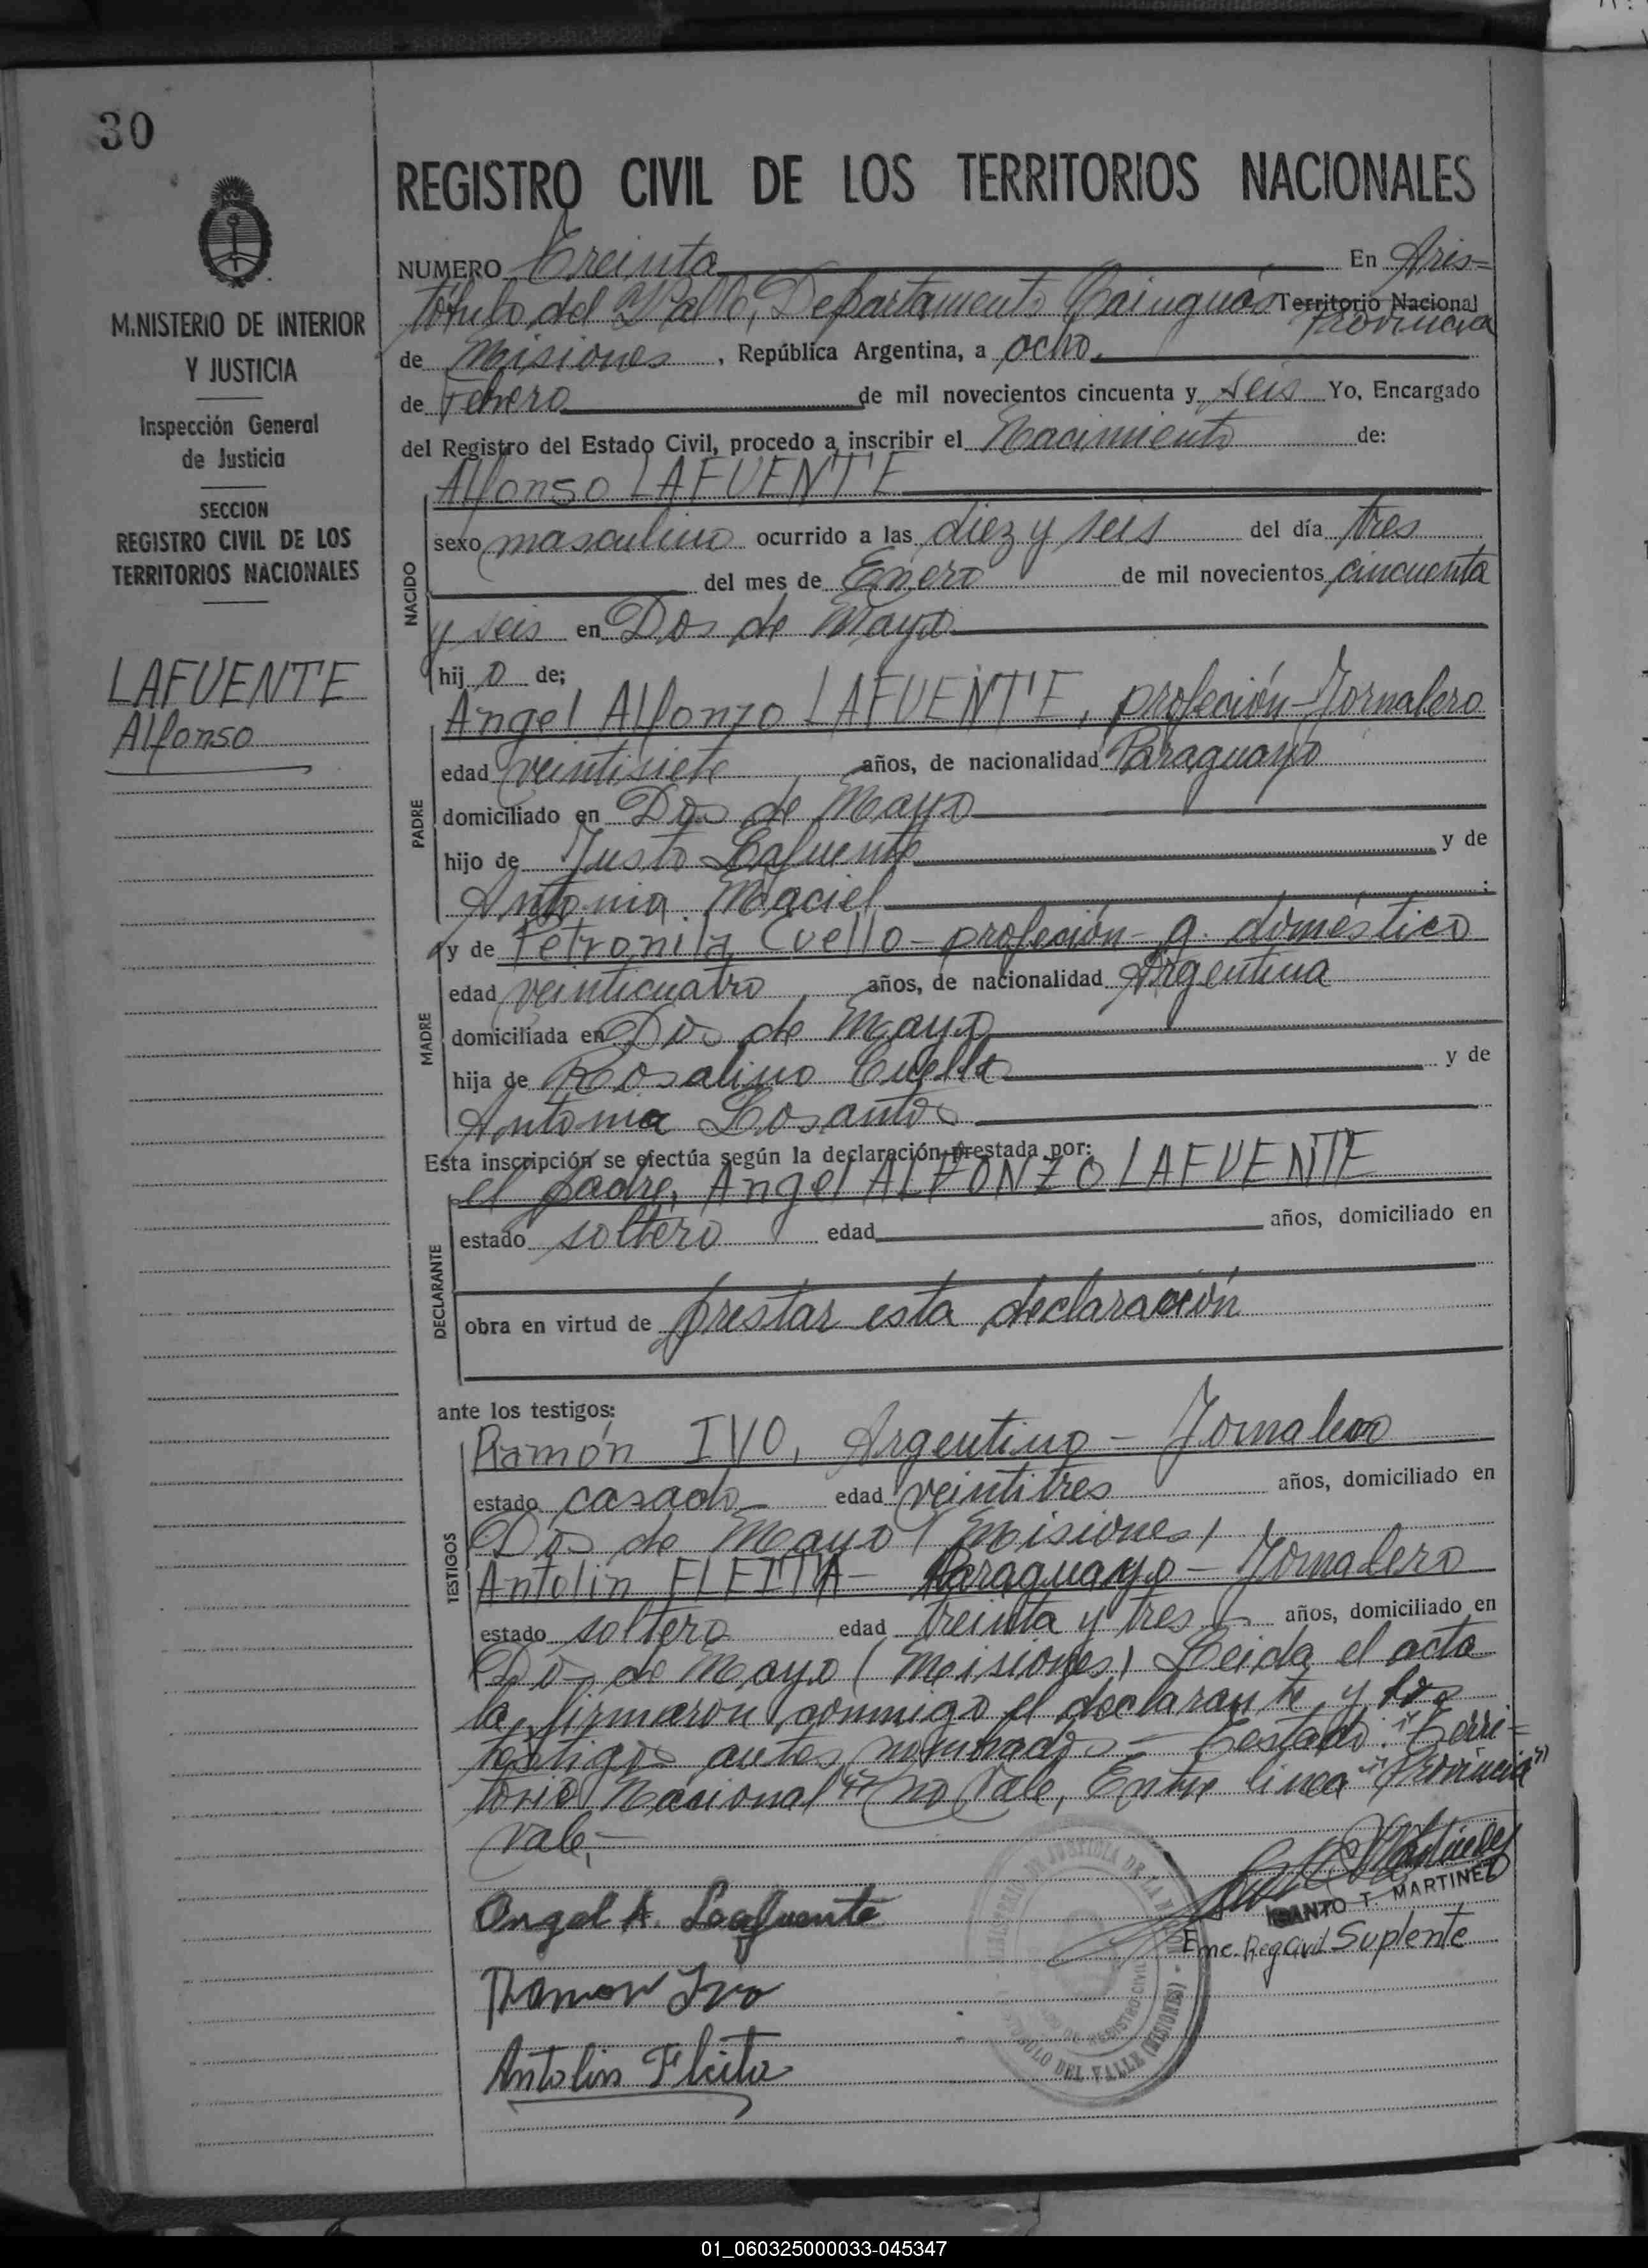 30
REGISTRO CIVIL DE LOS TERRITORIOS NACIONALES
M.NISTERIO DE INTERIOR
Y JUSTICIA
Inspección General
de Justicia
SECCION
REGISTRO CIVIL DE LOS
TERRITORIOS NACIONALES
LAFUENTE
Alfonso
NUMERO Treinta En Aris=
tóbulo del Valle, Departamento Cainguás Territorio Nacional
Provincia
de Misiones, República Argentina, a ocho
de Febrero de mil novecientos cincuenta y seis Yo, Encargado
del Registro del Estado Civil, procedo a inscribir el Nacimiento de:
NACIDO
Alfonso LAFUENTE
sexo masculino ocurrido a las diez y seis del día tres
del mes de Enero de mil novecientos cincuenta
y seis en Dos de Mayo
hij o de;
PADRE
Angel Alfonzo LAFUENTE, profeción-Jornalero
edad veintisiete años, de nacionalidad Paraguayo
domiciliado en Dos de Mayo
hijo de Justo Lafuente y de
Antonia Maciel;
MADRE
y de Petronila Cuello - profeción - q. doméstico
edad veinticuatro años, de nacionalidad Argentina
domiciliada en Dos de Mayo
hija de Rosalino Cuello y de
Antonia Losantos
Esta inscripción se efectúa según la declaración prestada por:
DECLARANTE
el padre, Angel ALFONZO LAFUENTE
estado soltero edad años, domiciliado en
obra en virtud de prestar esta declaración
ante los testigos:
TESTIGOS
Ramón IVO, Argentino - Jornalero
estado casado edad veintitres años, domiciliado en
Dos de Mayo (Misiones)
Antolin FLEITA - Paraguayo - Jornalero
estado soltero edad treinta y tres años, domiciliado en
Dos de Mayo (Misiones) Leida el acta
la firmaron conmigo el declarante y los
testigos antes nombrados - Testado: "Terri=
torio Nacional" No Vale, Entre linea "Provincia"
vale,-
Angel A. Lafuente
Ramon Ivo
Antolin Fleita
SANTO T. MARTINEZ
Enc. Reg Civil Suplente
MINISTERIO DE JUSTICIA DE LA NACION
REGISTRO CIVIL
DEL VALLE (MISIONES)
01_060325000033-045347